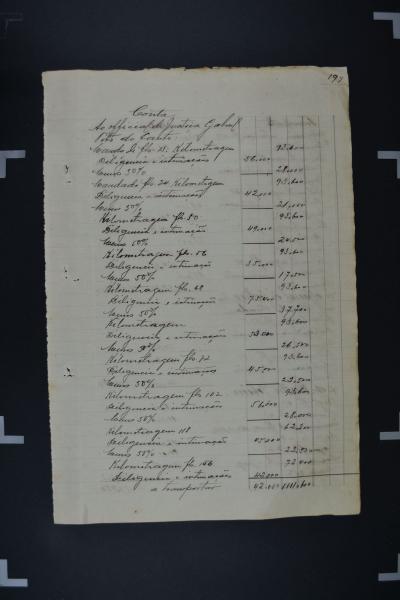 199
Conta
Ao official de Justiça Gabriel
Pitta do Couto
Mandado fls. 18. Kilometragem 93.600
Deligencia e intimação 56.000
Menos 50% 28.000
Mandado fls. 24 Kilometragem 93.600
Deligencia e intimações 42.000
Menos 50% 21.000
Kilometragem fls. 50 93.600
Deligencia e intimação 49.000
Menos 50% 24.500
Kilometragem fls. 56 93.600
Deligencia e intimação 35.000
Menos 50% 17.500
Kilometragem fls. 93.600
Deligencia e intimação
Menos 50%
Kilometragem 93.600
Deligencia e intimação 53.000
Menos 50% 26.500
Kilometragem fls. 93.600
Deligencia e intimação 45.000
Menos 50%
Kilometragem fls. 102 93.600
Deligencia e intimação 56.000
Menos 50% 28.000
Kilometragem 118
Deligencia e intimação
Menos 50%
Kilometragem fls. 166
Deligencia e intimação 42.000
a transportar 42.000